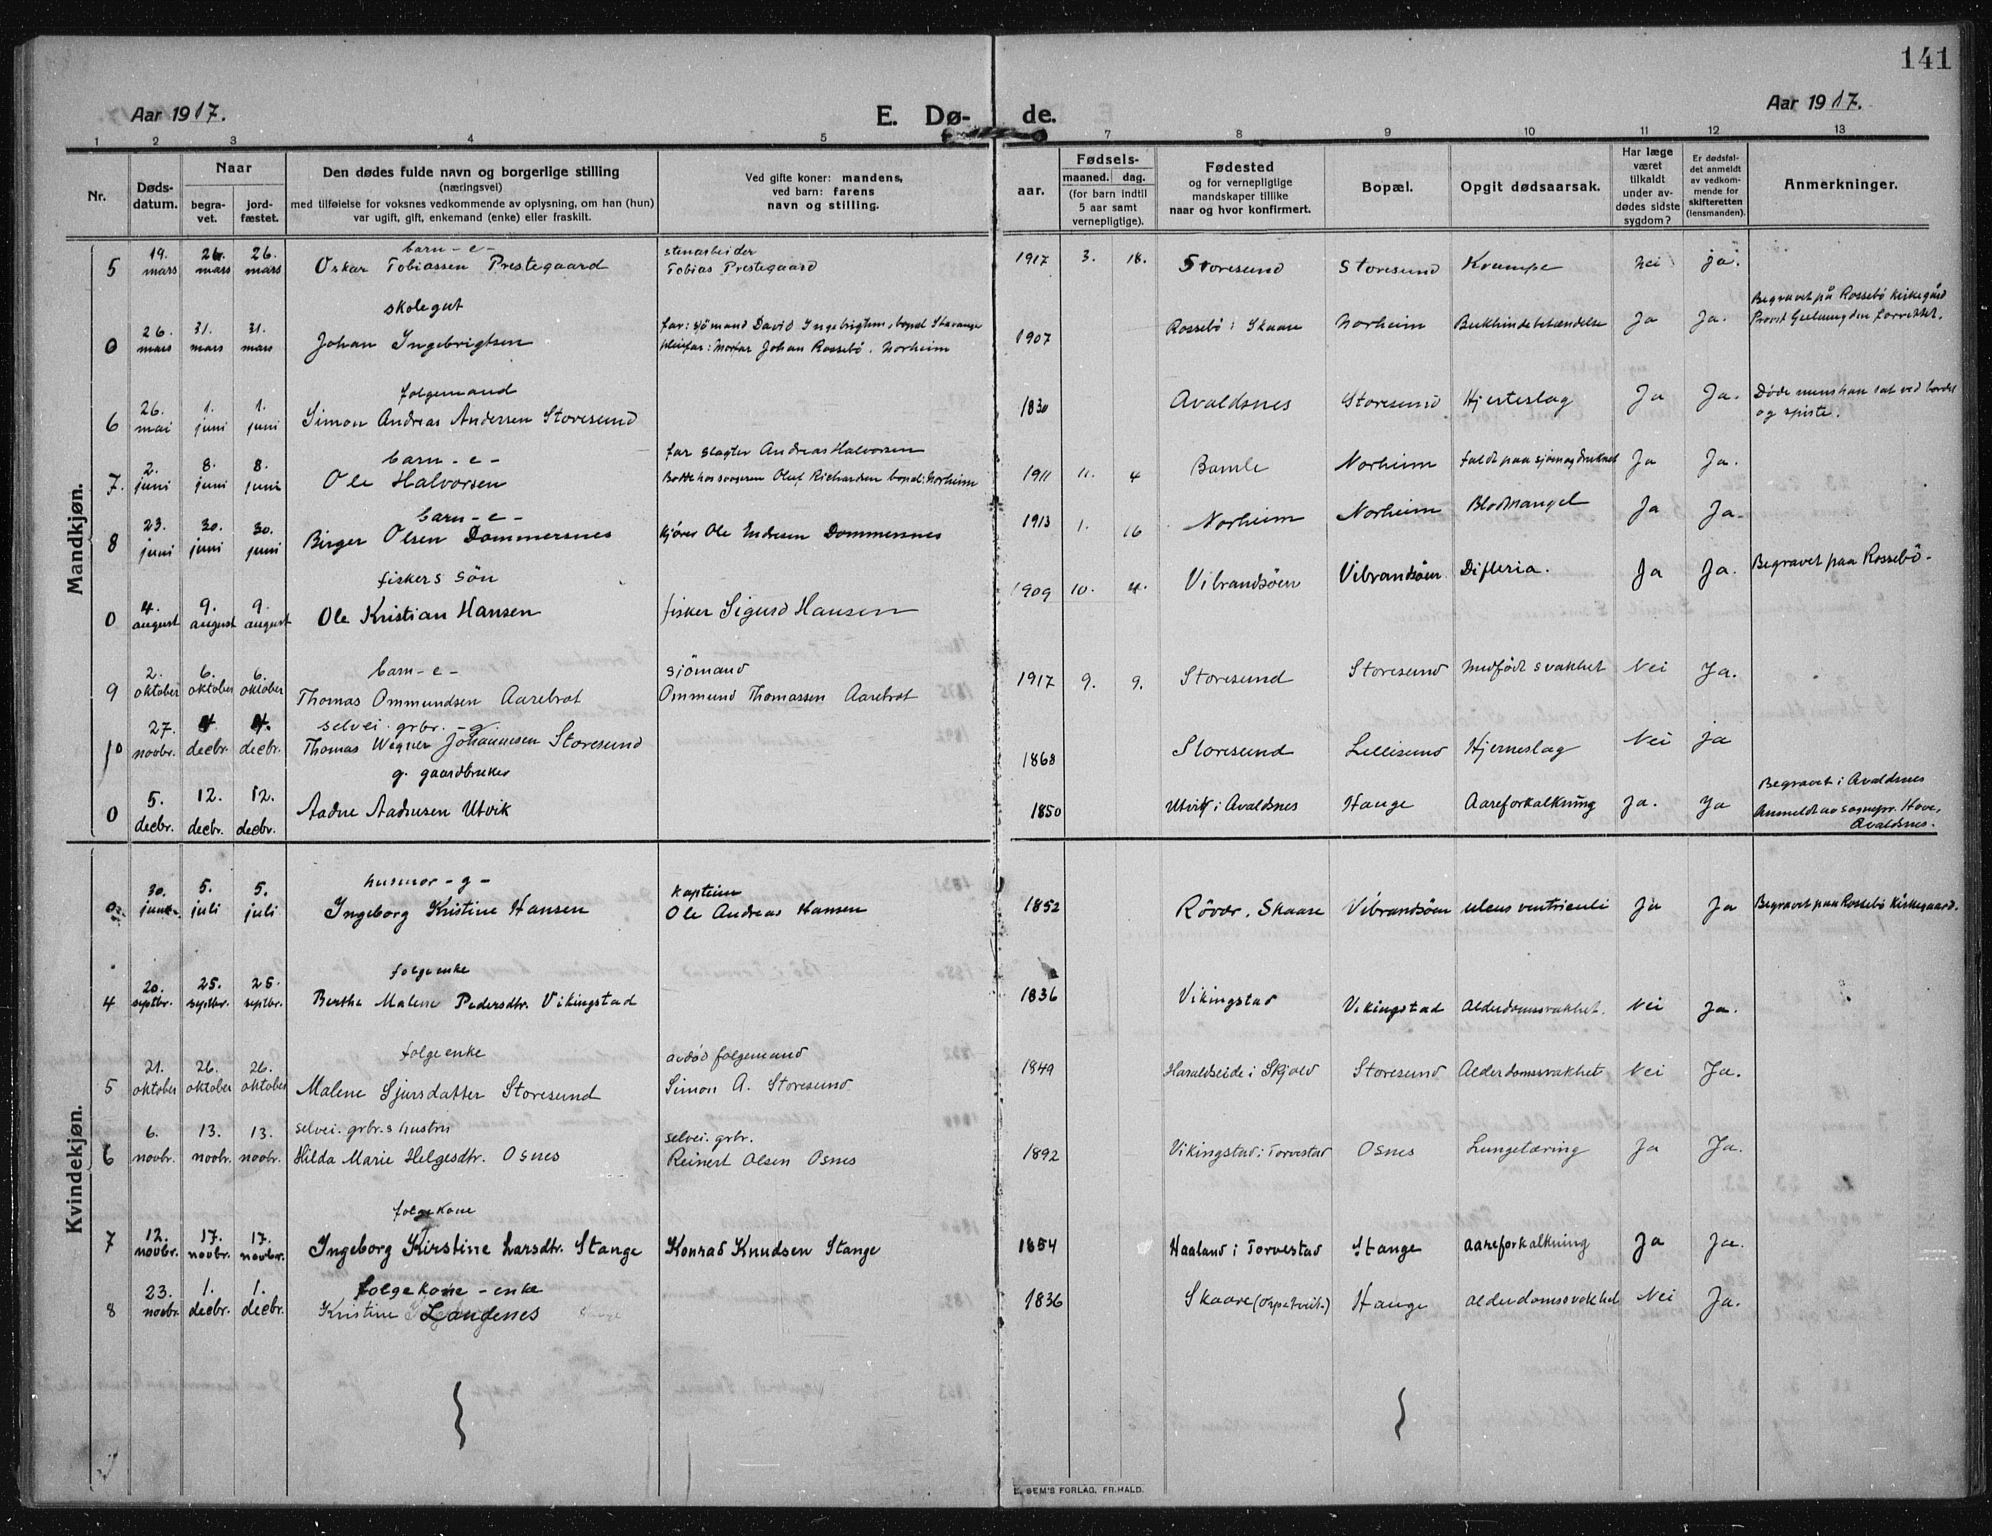 141
Aar 1917.
E. Dø-
de.
Aar 1917.
1 2 3 4 5 7 8 9 10 11 12 13
Nr.
Døds-
datum.
Naar
begra-
vet.
jord-
fæstet.
Den dødes fulde navn og borgerlige stilling
(næringsvei)
med tilføielse for voksnes vedkommende av oplysning, om han (hun)
var ugift, gift, enkemand (enke) eller fraskilt.
Ved gifte koner: mandens,
ved barn: farens
navn og stilling.
aar.
Fødsels-
maaned. dag.
(for barn indtil
5 aar samt
vernepligtige).
Fødested
og for vernepligtige
mandskaper tillike
naar og hvor konfirmert.
Bopæl.
Opgit dødsaarsak.
Har læge
været
tilkaldt
under av-
dødes sidste
sygdom?
Er dødsfal-
det anmeldt
av vedkom-
mende for
skifteretten
(lensmanden).
Anmerkninger.
Mandkjøn.
barn - e - stenarbeider
5 19. mars 26. mars 26. mars Oskar Tobiassen Prestegaard Tobias Prestegaard 1917 3. 18. Storesund Storesund Krampe Nei ja.
skolegut
0 26. mars 31. mars 31. mars Johan Ingebrigtsen far: sjömand David Ingebrigtsen, bopæl Stavanger
pleifar: Morfar Johan Rossebö. Norheim 1907 Rossebö i Skaare Norheim Bukhindebetændelse Ja Ja. Begravet på Rossebö kirkegård
forrettet.
folgemand
6 26. mai 1. juni 1. juni Simon Andreas Andersen Storesund 1830 Avaldsnes Storesund Hjerteslag Ja Ja. Døde mens han sat ved bordet
og spiste.
barn - e - far slagter Andreas Halvorsen
7. 2. juni 8. juni 8. juni Ole Halvorsen svogeren Oluf Richardsen bopæl: Norheim 1911 11. 4 Bamle Norheim faldt paa sjön og druknet Ja Ja.
barn - e -
8 23. juni 30. juni 30. juni Birger Olsen Dommersnes kjörer Ole Endresen Dommersnes 1913 1. 16 Norheim Norheim Blodmangel Ja Ja.
fiskers sön
0 4. august 9. august 9. august Ole Kristian Hansen fisker Sigurd Hansen 1909 10. 4. Vibrandsöen Vibrandsöen Difteria. Ja Ja. Begravet paa Rossebö -
barn - e - sjömand
9 2. oktober 6. oktober 6. oktober Thomas Ommundsen Aarebrot Ommund Thomassen Aarebrot 1917 9. 9. Storesund Storesund Medfödt svakhet Nei Ja.
selvei. grbr. - g -
10 27. novbr. 4. decbr. 4. decbr. Thomas Wegner Johannesen Storesund 1868 Storesund Lillesund Hjerneslag Nei ja
g. gaardbruker
0 5. decbr. 12. decbr. 12. decbr. Aadne Aadnesen Utvik 1850 Utvik i Avaldsnes Hauge Aareforkalkning ja. Ja Begravet i Avaldsnes
Anmeldt av sognepr. Hove,
Avaldsnes.
Kvindekjøn.
husmor - g - kaptein
0 30. juni 5. juli 5. juli Ingeborg Kristine Hansen Ole Andreas Hansen 1852 Rövær. Skaare Vibrandsöen ulcus ventriculi Ja Ja Begravet paa Rossebö Kirkegaard.
folgeenke
4 20. septbr. 25. septbr. 25. septbr. Bertha Malene Pedersdtr. Vikingstad 1836 Vikingstad Vikingstad Alderdomssvakhet. Nei Ja.
folgeenke avdöd folgemand
5 21. oktober 26. oktober 26. oktober Malene Sjursdatter Storesund Simon A. Storesund 1849 Haraldseide i Skjold Storesund Alderdomssvakhet Nei Ja.
selvei. grbr.s hustru selvei. grbr.
6 6. novbr. 13. novbr. 13. novbr. Hilda Marie Helgesdtr. Osnes Reinert Olsen Osnes 1892 Vikingstad i Torvestad Osnes Lungetæring Ja Ja.
folgekone
7 12. novbr. 17. novbr. 17. novbr. Ingeborg Kirstine Larsdtr. Stange Konrad Knudsen Stange 1854 Haaland i Torvestad Stange Aareforkalkning Ja Ja.
folgekone - enke
8 23. novbr. 1. decbr. 1. decbr. Kristine Landenes 1836 Skaare Hauge Alderdomssvakhet Nei Ja.
E. SEM'S FORLAG, FR.HALD.